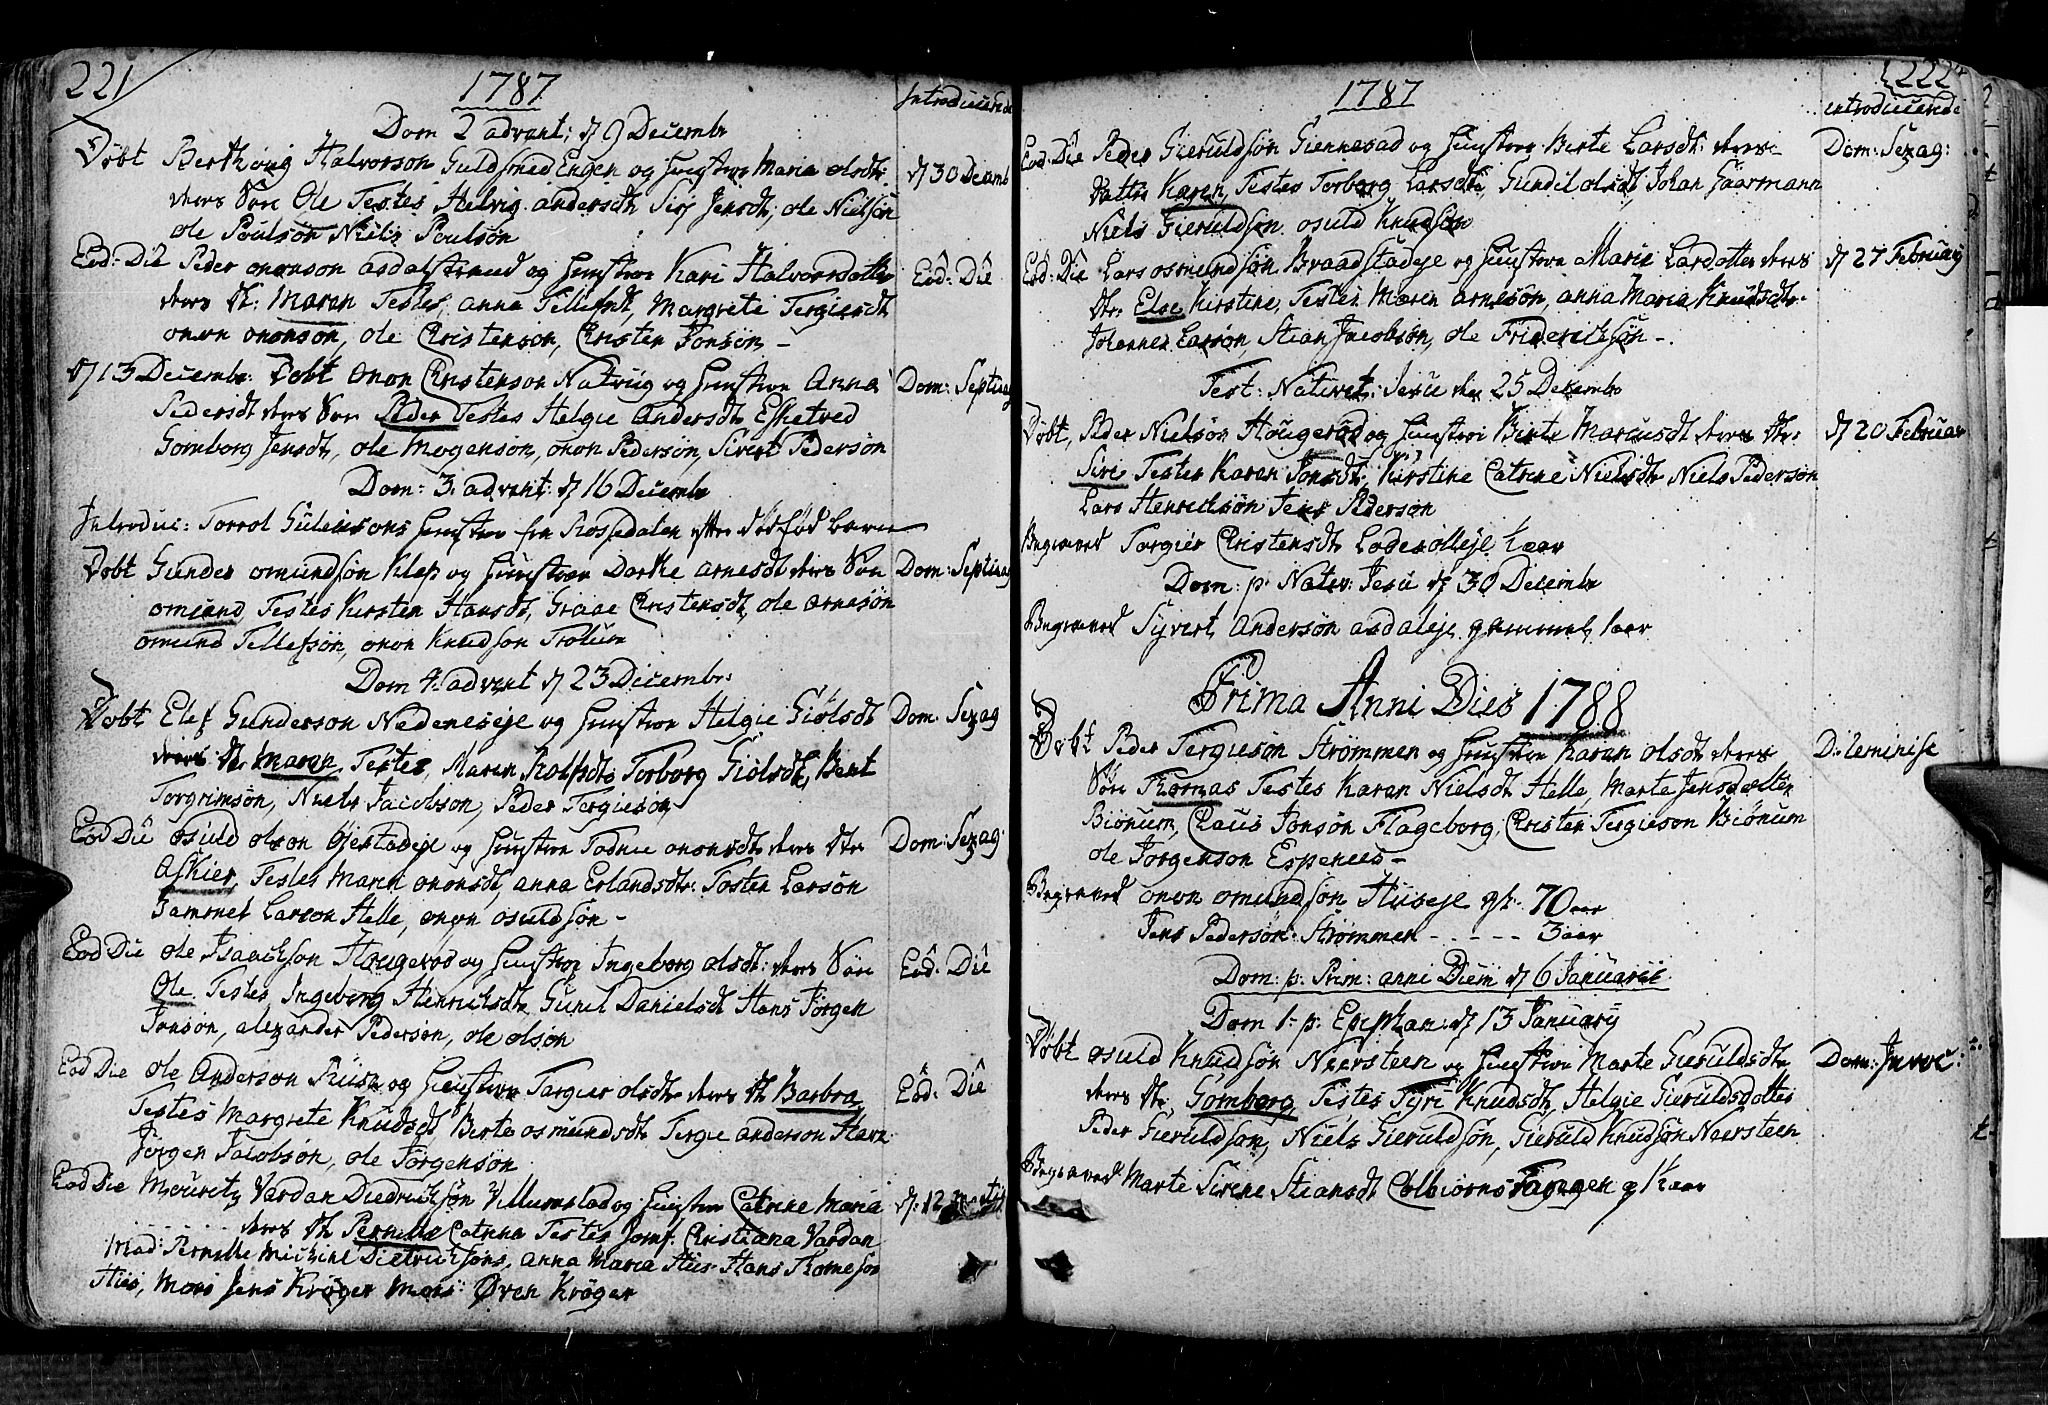 221
1787
Introducerede
Dom 2 advent: d 9 Decembr
Døbt Berthoug Halvorson Guldsmed Engen og Hustroe Maria olsdtr
deres Søn Ole Testes Helvig andersdtr Siri Jensdt; ole Nielsøn
ole Poulsøn Niels Poulsøn
d 30 Decemb
Eod: Die Peder ononson asdalstrand og Hustroe Kari Halvorsdotter
deres dt: Maren Testes, anna Tellefsdt, Margrete Tergiesdt
onon ononson, ole Christenson, Christen Jonsøn –
Eod: Die
d 13 Decembr: Døbt onon Christenson Natvig og Hustroe Anna
Pedersdt deres Søn Peder Testes Helgie Andersdt
Gomborg Jensdt, ole Mogenson, onon Pedersøn, Sivert Pedersøn
Dom: Septuag
Dom: 3. advent: d 16 Decembr
Introduc: Torrol Gulleusons Hustroe fra Rossedalen efter dødfød barn
Døbt Gunder omundsøn Klep og Hustroe Dorthe arnesdt deres Søn
omund Testes Kirsten Hansdt, Graae Christensdt, ole arnesøn
omund Tellefsøn, onon Knudson Trotum
Dom: Septuag
Dom 4. advent d 23 Decembr:
Døbt Elef Gunderson Nedeneseje og Hustroe Helgie Giølsdt
deres dt. Maren Testes, Maren Rolfsdt Torborg Giølsdt, Bent
Torgrimsøn, Niels Jacobson, Peder Tergieson
Dom: Sexag
Eod Die osuld olson Øjestadeje og Hustroe Todne ononsdt deres dtr
Ashier, Testes Maren ononsdt, anna Erlandsdtr: Tosten Larsøn
Sammnel Larson Helle, onon osuldsøn –
Dom: Sexag:
Eod Die ole Isaachson Hougerød og Hustroe Ingeborg olsdt: deres Søn
Ole. Testes Ingeborg Henrichsdt, Gunil Danielsdt Hans Jørgen
Jonsøn, alexander Pedersøn, ole olsøn
Eod: Die
Eod Die ole Anderson Riise og Hustroe Targier olsdtr deres dt Barbra
Testes Margrete Knudsdt Berte osmundsdt Tergie anderson
Jørgen Jacobsøn, ole Jørgensøn
Eod: Die
Eod Die Mouritz Vardan Diedrichsøn Villumstad og Hustroe Catrine Maria
deres dt Pernille Catrina Testes Jomf: Christiana Vardan
Mad: Pernille Michine Dietrichsøns, anna Maria Huus Hans Thomesøn
Huus, Mons Jens Krøger Mons: Øven Krøger
d: 12 Martij
222
1787
introducerede
Eod: Die Peder Gieruldsøn Giennesad og Hustroe Birte Larsdt: deres
datter Karen, Testes Torborg Larsdt, Gundil olsdt, Johan Gaarmann
Niels Gieruldsøn. osuld Knudsøn
Dom: Sexag:
Eod: Die Lars osmundsøn Braadstadeje og Hustroe Marie Larsdotter deres
dtr. Else Kirstine, Testes Maren arneson, anna Maria Knudsdtr.
Johannes Larsøn, Stian Jacobsøn, ole Friderichsøn –.
d 27 February
Fest: Nativit: Jesu den 25 Decembr
Døbt, Peder Nielsøn Hougerød og Hustroe Birte Marcusdt deres dtr.
Siri Testes Karen Jonsdt, Kirstine Catrine Nielsdt Niels Pedersøn
Lars Henrichsøn Jens Pederson
d 20 Februar
Begraved Torgier Christensdt Lødesølleje, 1/2 aar
Dom: p. Nativ: Jesu d 30 Decembr
Begraved Syvert Andersøn asdaleje gammel, 1 aar
Prima Anni Dies 1788
Døbt Peder Tergiesøn Strømmen og Hustroe Karen olsdt deres
Søn Thomas Testes Karen Nielsdt Helle, Marte Jensdotter
Biønum, Claus Jonsøn Flageborg, Christen Tergieson Biønum
ole Jørgenson Espenees –
D: Reminise
Begraved onon omundsøn Huseje gl: 70 aar
Jens Pedersøn Strømmen - - - - - 3 aar
Dom: p: Prim: anni Diem d 6 Januarii
Dom 1. p. Epiphan: d 13 January
Døbt osuld Knudsøn Neersteen og Hustroe Marte Gieruldsdt
deres dt Gomborg, Testes Tyri Knudsdt, Helgie Gieruldsdotter
Peder Gieruldson, Niels Gieruldsøn, Gieruld Knudsøn Neersteen
Dom: Invoc:
Begraved Marte Sirene Stiansdt Colbiørns Tangen 1/2 aar